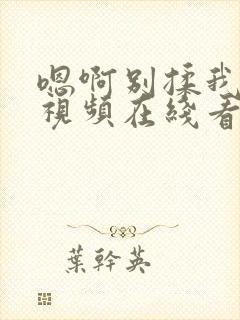 嗯啊别揉我
視頻在綫看
葉幹英